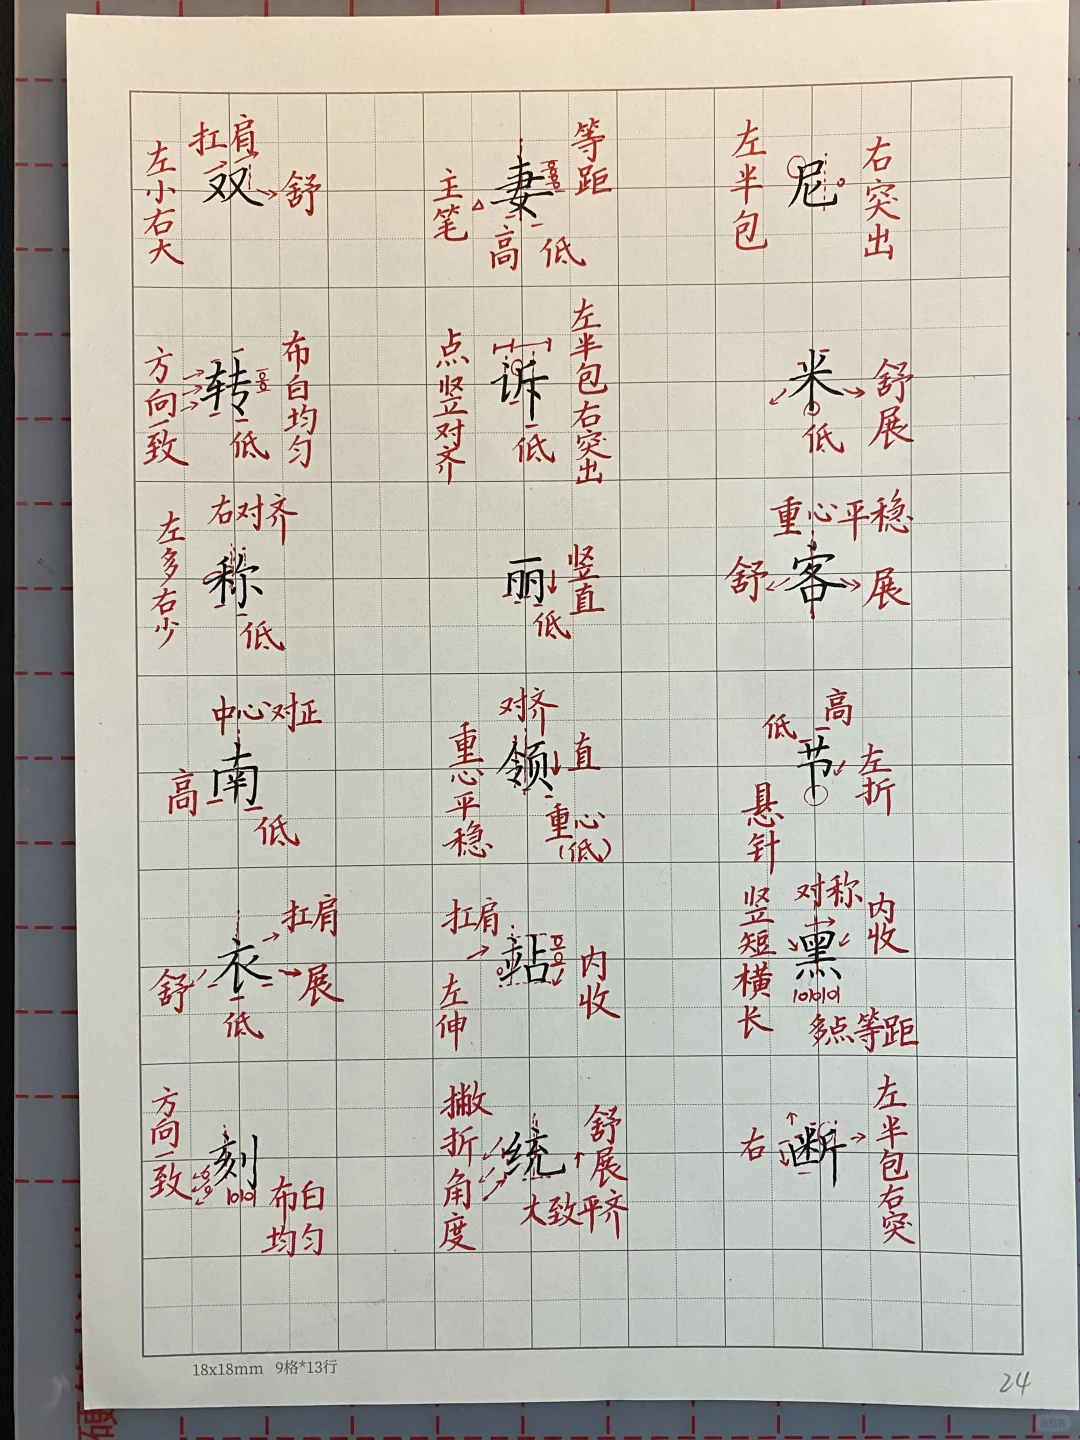 左小右大
扛肩
双
舒
主笔
妻
等距
高 低
左半包
尼
右突出
方向一致
转
布白均匀
低
点竖对齐
诉
左半包右突出
低
米
舒展
低
左多右少
右对齐
称
低
丽
竖直
低
重心平稳
舒
客
展
中心对正
高
南
低
对齐
重心平稳
领
直
重心
(低)
低 高
节
左折
悬针
扛肩
舒
衣
展
低
扛肩
左伸
站
内收
竖短横长
对称
黑
内收
多点等距
方向一致
刻
布白均匀
撇折角度
统
舒展
大致平齐
右
断
左半包右突
18x18mm 9格*13行
24
小红书